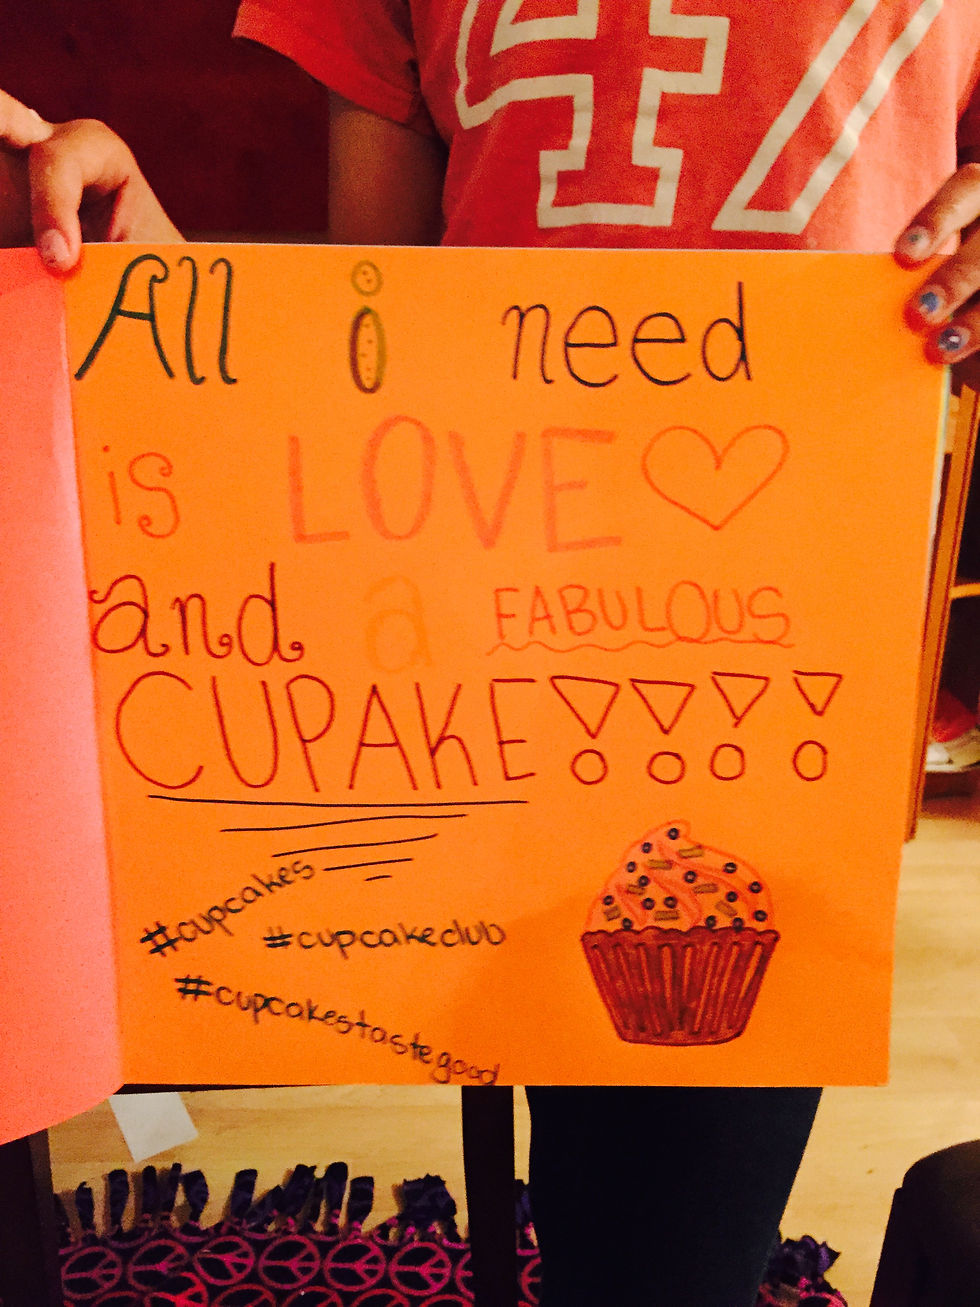 47
All i need
is LOVE
and a FABULOUS
CUPAKE!!!!
#cupcakes
#cupcakeclub
#cupcakestastegood